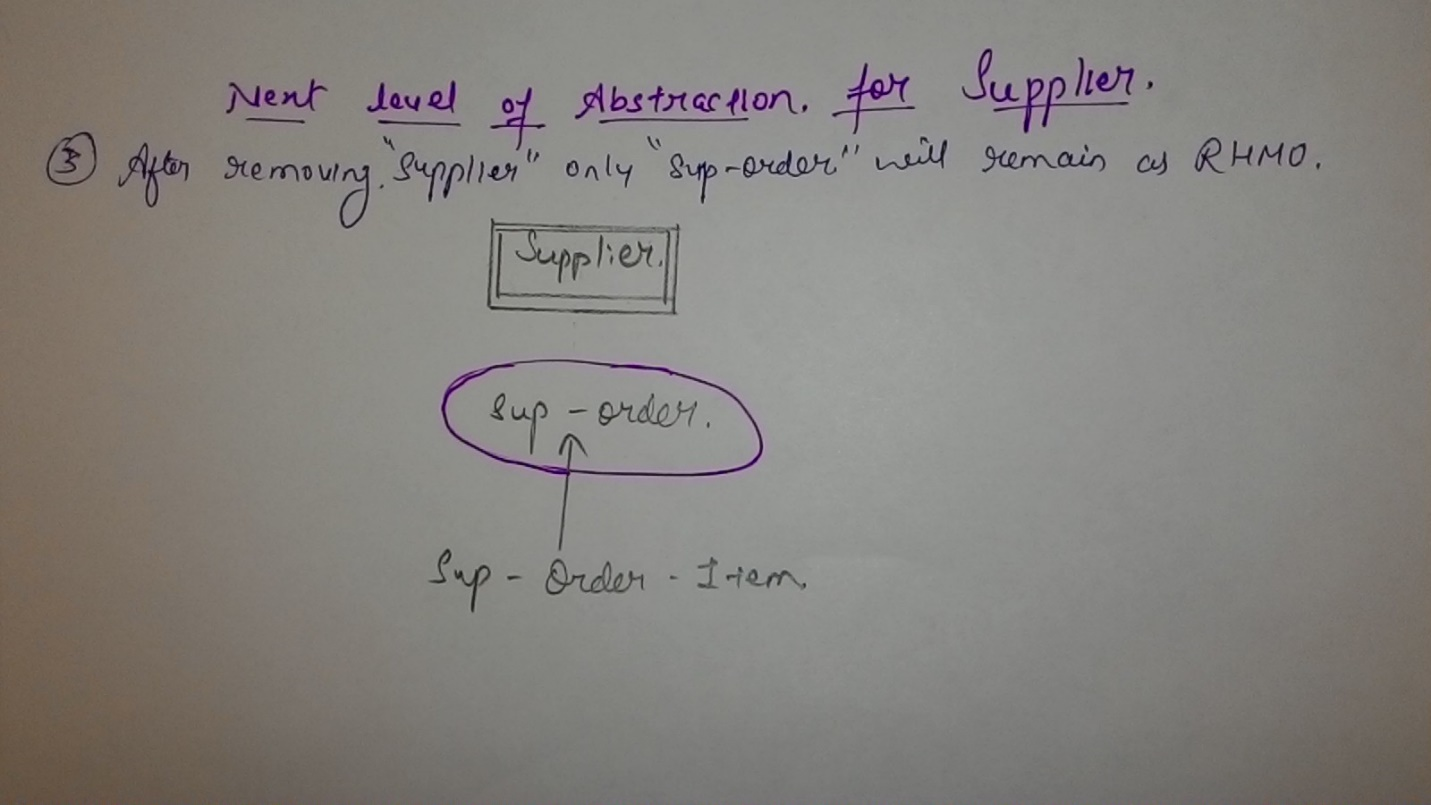 Next level of Abstraction. for Supplier.
③ After removing. "Supplier" only "Sup-order" will remain as RHMO.
Supplier.
Sup - order.
Sup - Order - Item.